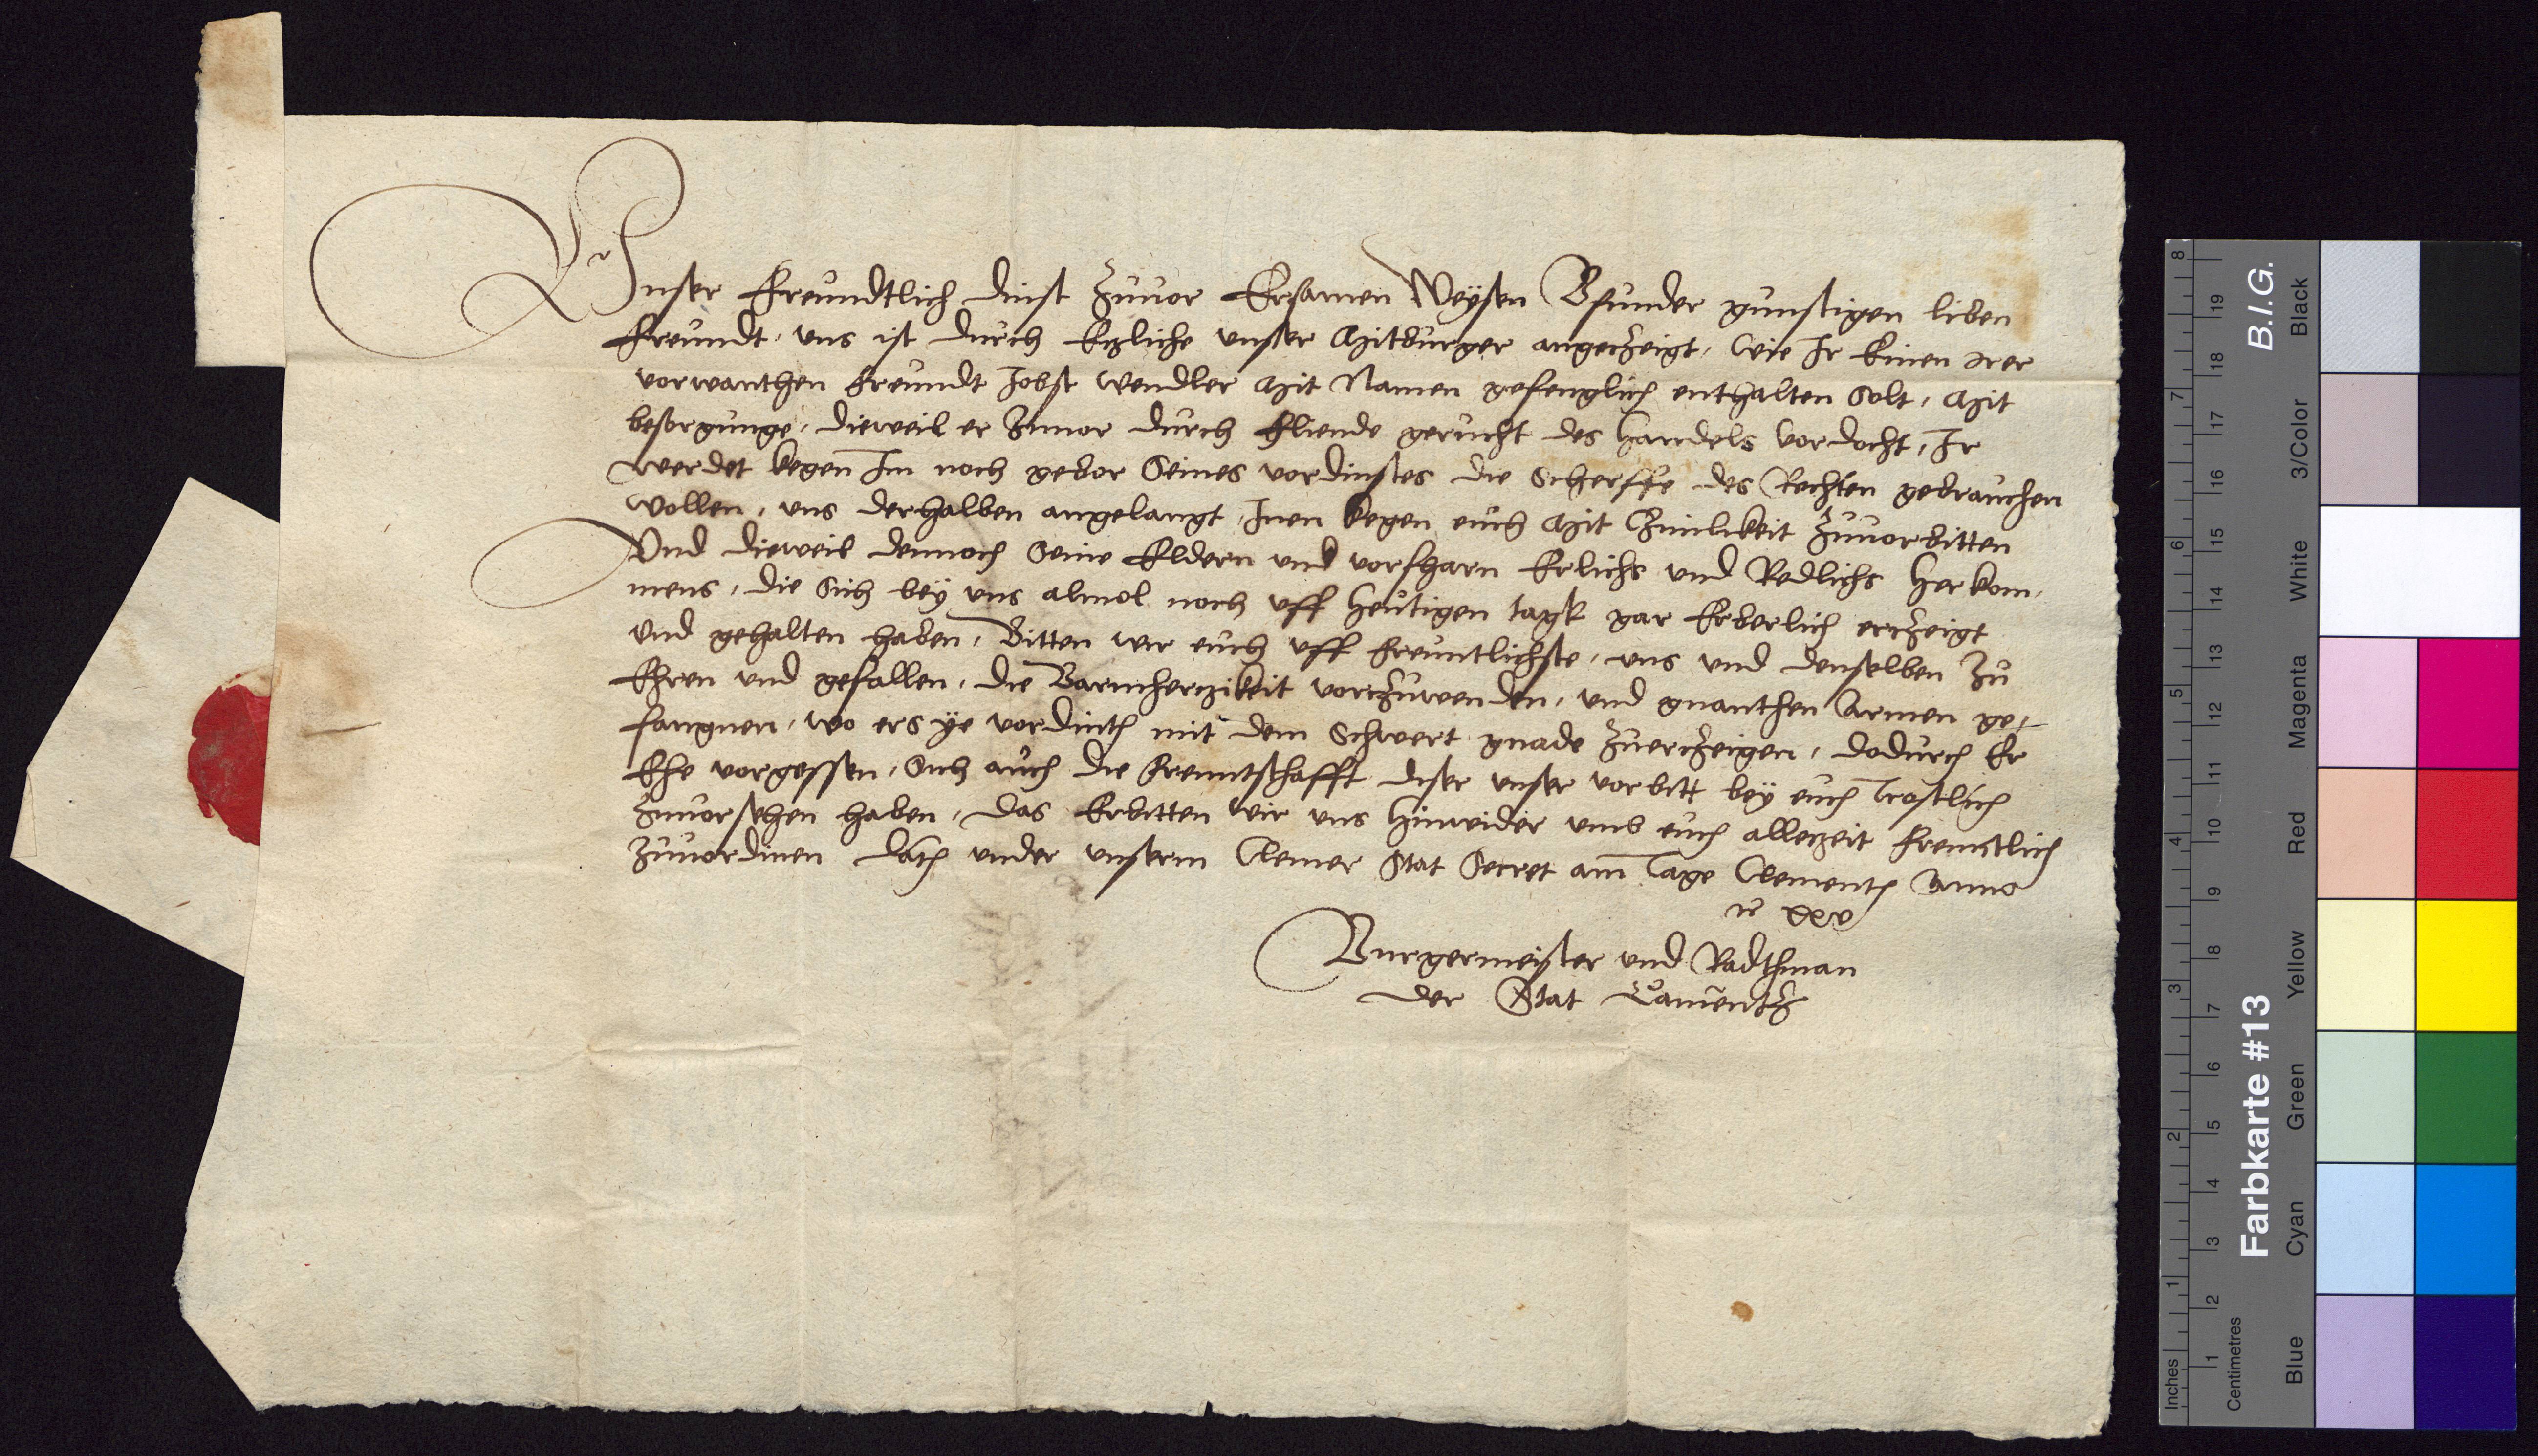 Unser freundtlich dinst zuuor Ersamen Weysen Bsunder gunstigen liben
freundt, uns ist durch etzliche unser Mitburger angeczeigt, wie Ir einen irer
vorwanthen freundt Jobst Wendler Mit Namen gefenglich enthalten solt, Mit
besorgunge, dieweil er zuuor durch fliende gerucht des handels vordocht, Ir
werdet kegen Im noch gebor seines vordinstes die scherffe des Rechten gebrauchen
wollen, uns derhalben angelangt, Inen kegen euch Mit zcimlikeit zuuorbitten
Und dieweil dennoch seine Eldern und vorfharn Erlichs und Redlichs herkom,
mens, die sich bey uns almol noch uff heutigen tagk gar Erberlich erczeigt
und gehalten haben, Bitten wir euch uff freuntlichste, uns und denselben zu
Ehren und gefallen, die Barmherczikeit vorczuwenden, und gnanthen armen ge,
fangnen, wo ers ye vordint mit dem Schwert gnade zuerczeigen, dodurch Er
Ehe vorgessen, sich auch die freuntschafft diser unser vorbitt bey euch trostlich
zuuorsehen haben, das Erbitten wir uns hinwider umb euch alleczeit freuntlich
zuuordinen dat under unserm Clener Stat Secret am tage Clementis Anno
xxv
Burgermeister und Radthman
der Stat Camentz
Farbkarte #13
B.I.G.
Inches
1 2 3 4 5 6 7 8
Centimetres
1 2 3 4 5 6 7 8 9 10 11 12 13 14 15 16 17 18 19
Blue Cyan Green Yellow Red Magenta White 3/Color Black